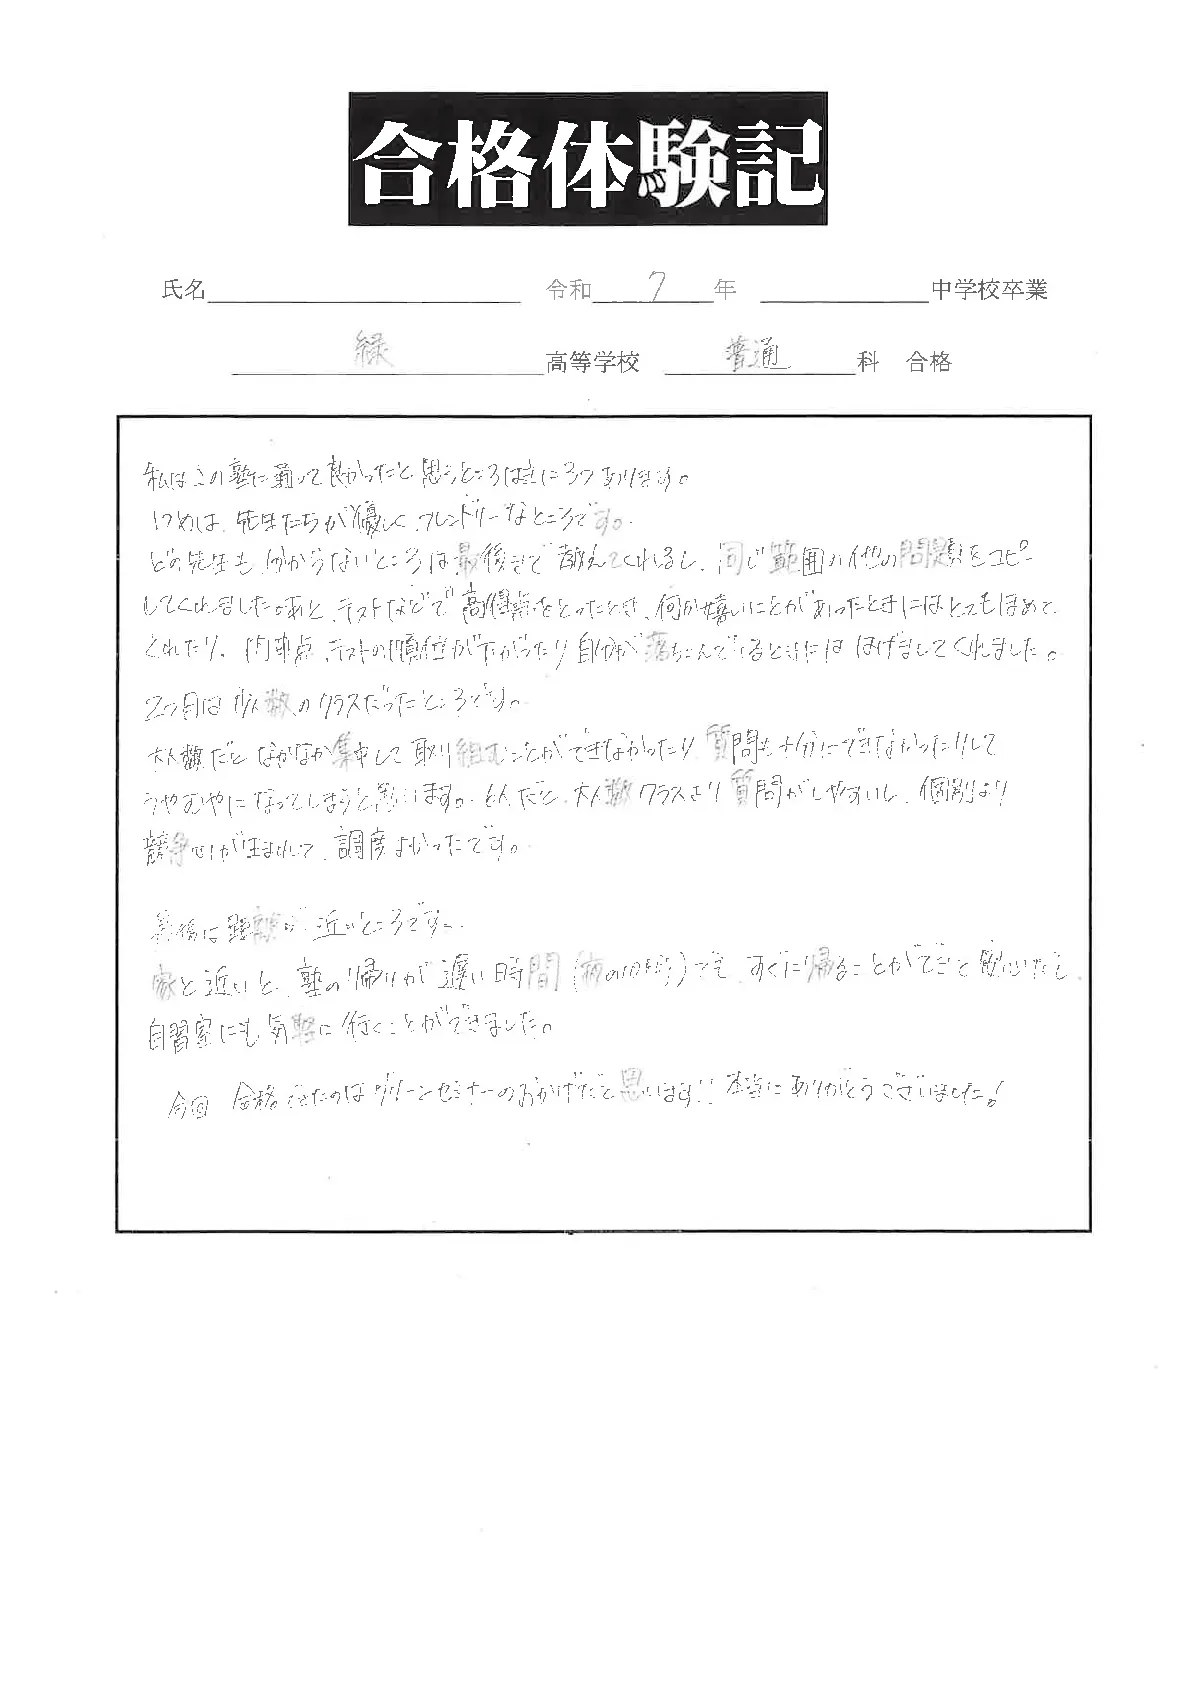 合格体験記
氏名 令和 7 年 中学校卒業
緑 高等学校 普通 科 合格
私はこの塾に通って良かったと思うところは主に3つあります。
1つめは、先生たちが優しく、フレンドリーなところです。
どの先生も、分からないところは最後まで教えてくれるし、同じ範囲の他の問題をコピー
してくれました。あと、テストなどで高得点をとったとき、何か嬉しいことがあったときにはとてもほめて
くれたり、内申点、テストの順位が下がったり自分が落ちこんでいるときには はげましてくれました。
2つ目は少人数のクラスだったところです。
大人数だと なかなか集中して取り組むことができなかったり、質問も十分にできなかったりして
うやむやになってしまうと思います。6人だと、大人数クラスより質問がしやすいし、個別より
競争心が生まれて、調度よかったです。
最後は距離が近いところです。
家と近いと、塾の帰りが遅い時間(夜の10時)でも、すぐに帰ることができて 安心だし、
自習室にも気軽に行くことができました。
今回 合格できたのはグリーンセミナーのおかげだと思います!! 本当にありがとうございました!